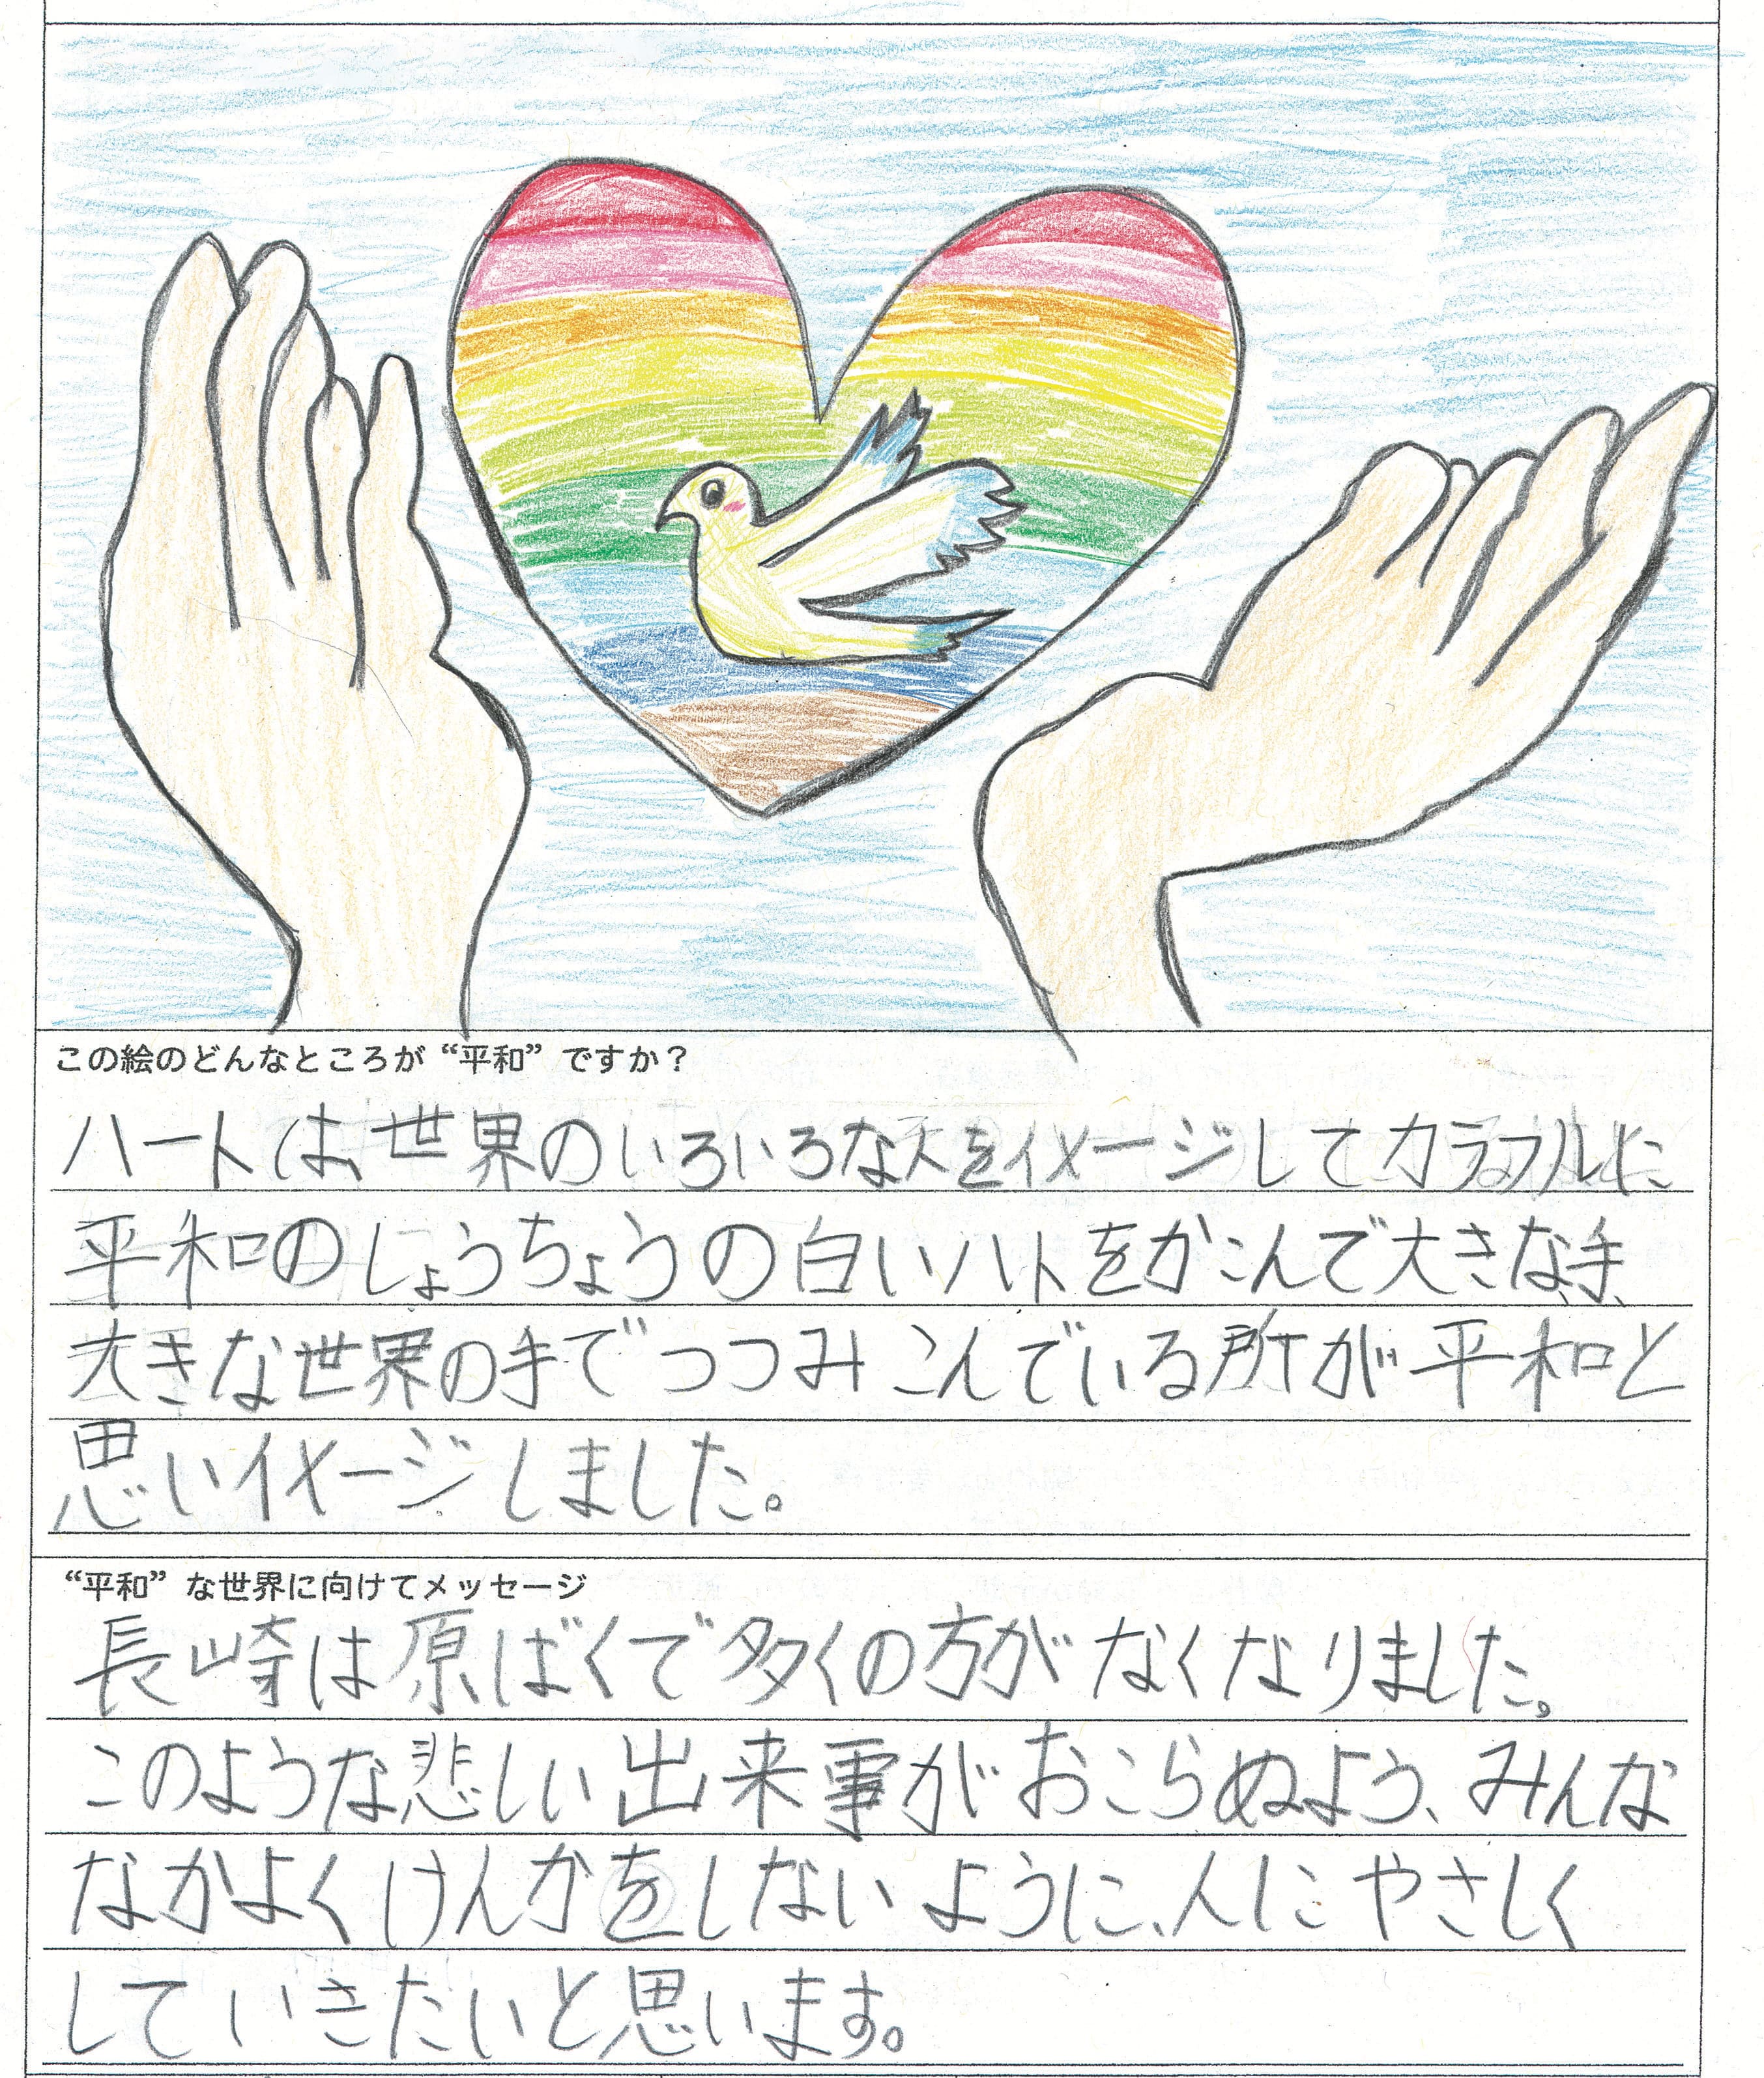 この絵のどんなところが“平和”ですか？
ハートは、世界のいろいろな人をイメージしてカラフルに
平和のしょうちょうの白いハトをかこんで大きな手、
大きな世界の手でつつみこんでいる所が平和と
思いイメージしました。
“平和”な世界に向けてメッセージ
長崎は原ばくで多くの方がなくなりました。
このような悲しい出来事がおこらぬよう、みんな
なかよくけんかをしないように、人にやさしく
していきたいと思います。